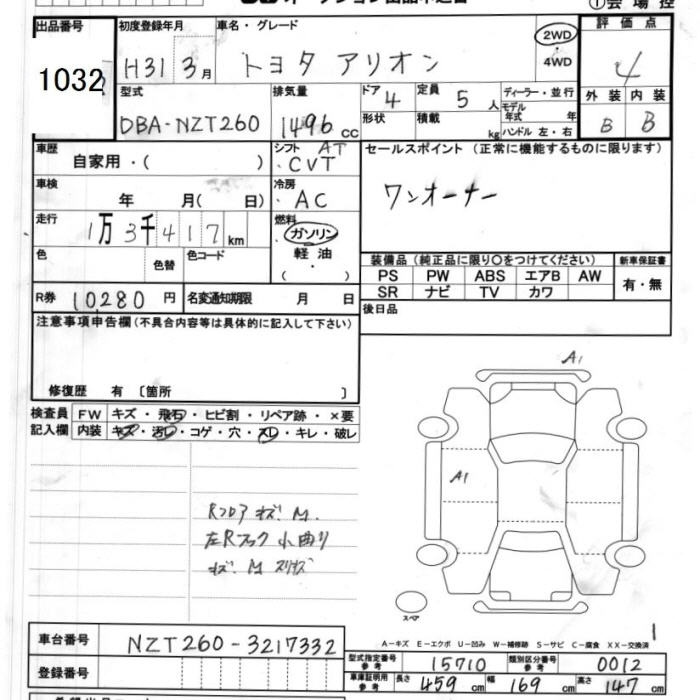 出品番号 初度登録年月 車名・グレード 評価点
1032 H31 3月 トヨタ アリオン 2WD 4
・4WD
型式 排気量 ドア 4 定員 5人 ディーラー・並行 外装 内装
DBA-NZT260 1496 cc 形状 積載 kg モデル年式 年 B B
ハンドル 左・右
車歴 シフト AT セールスポイント(正常に機能するものに限ります)
自家用・( ) ・CVT
車検 冷房 ワンオーナー
年 月( 日) ・AC
走行 燃料
1万3千417km ガソリン
色 色替 色コード 軽油 装備品(純正品に限り〇をつけてください) 新車保証書
・ PS PW ABS エアB AW 有・無
R券 10,280 円 名変通知期限 月 日 SR ナビ TV カワ
注意事項申告欄(不具合内容等は具体的に記入して下さい) 後日品
修復歴 有 〔箇所 〕
A1
検査員 FW キズ・飛石・ヒビ割・リペア跡・×要
記入欄 内装 キズ・汚レ・コゲ・穴・スレ・キレ・破レ
A1
Rフロア キズ M.
左Rフック 小曲り
キズ M スリキズ
スペア
1
A-キズ E-エクボ U-凹み W-補修跡 S-サビ C-腐食 XX-交換済
車台番号 NZT260-3217332
型式指定番号 参考 15710 類別区分番号 参考 0012
登録番号 車庫証明用 参考 長さ 459 cm 幅 169 cm 高さ 147 cm